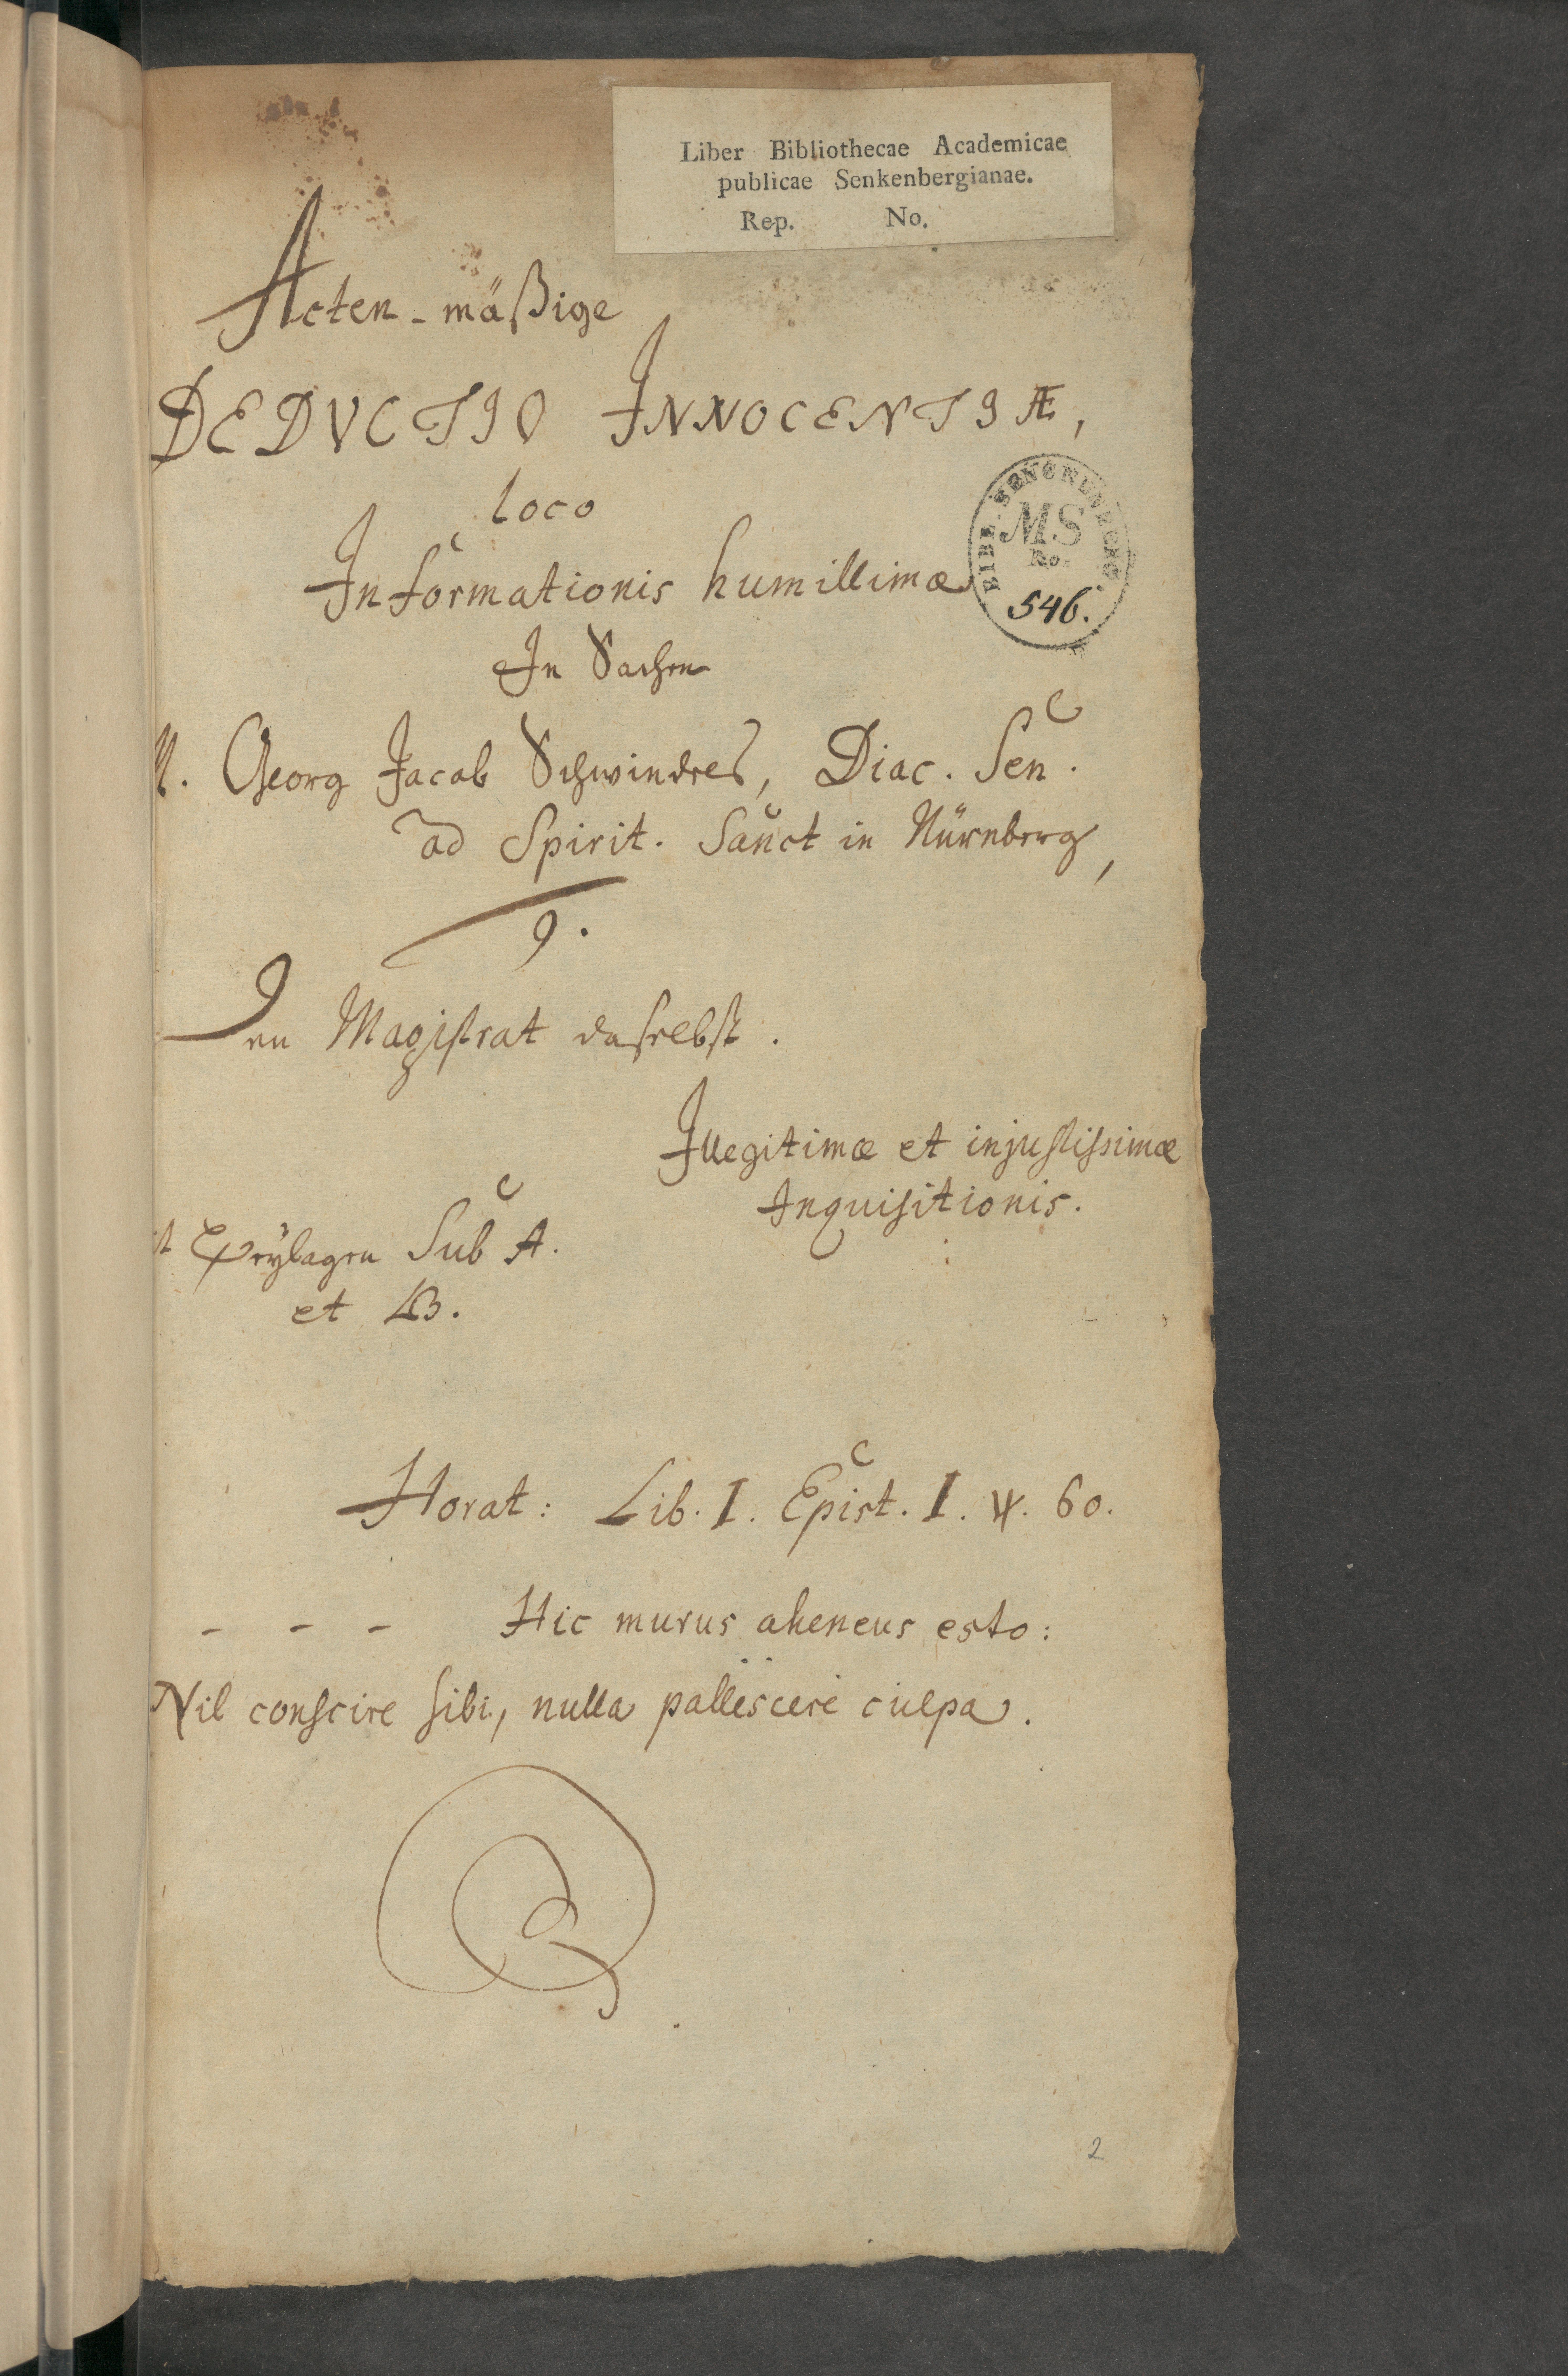 Liber Bibliothecae Academicae
publicae Senkenbergianae.
Rep. No.
Acten-mäßige
DEDVCTIO INNOCENTIÆ,
loco
Informationis humillimæ
BIBL. SENCKENBERG
MS
No.
546.
In Sachen
M. Georg Jacob Schwindel, Diac. Sen.
ad Spirit. Sanct in Nürnberg,
Den Magistrat daselbst.
Illegitimæ et injustissimæ
Inquisitionis.
Beylagen Sub A.
et B.
Horat: Lib. I. Epist. I. 60.
- - - Hic murus aheneus esto:
Nil conscire sibi, nulla pallescere culpa.
2